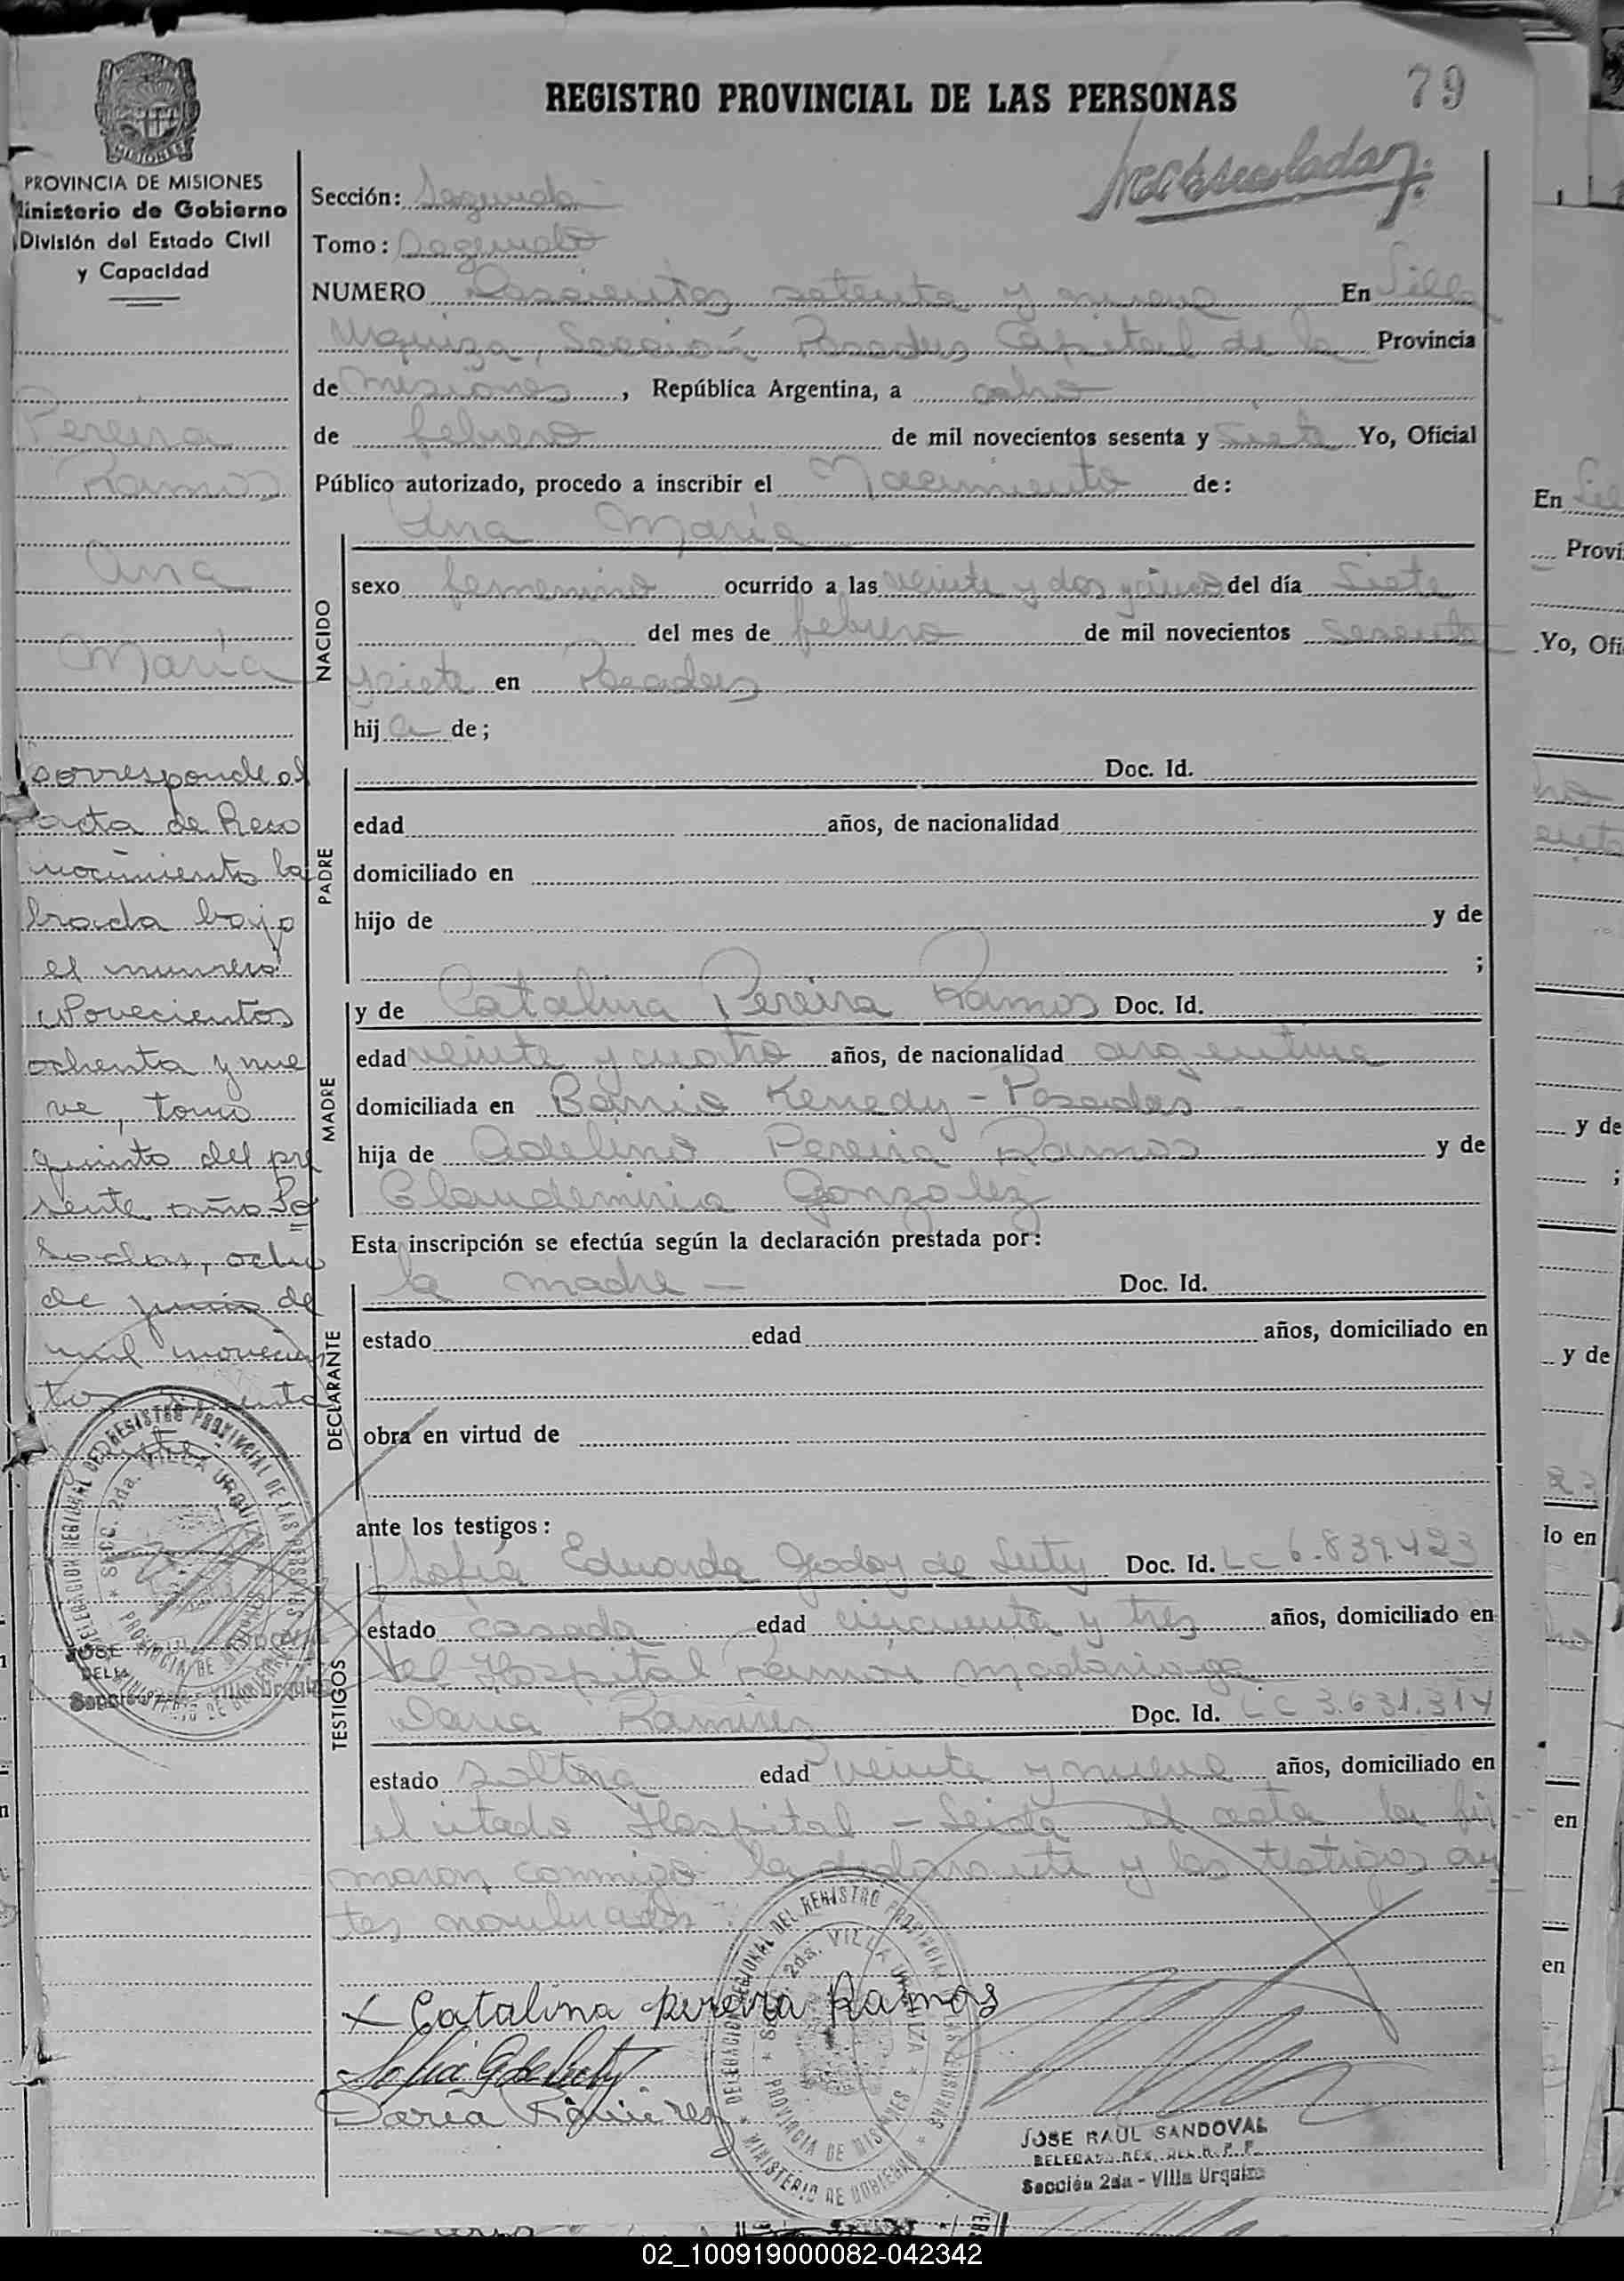 REGISTRO PROVINCIAL DE LAS PERSONAS
79
MISIONES
PROVINCIA DE MISIONES
Ministerio de Gobierno
División del Estado Civil
y Capacidad
Sección: Segunda
Tomo: Segundo
NUMERO Doscientos setenta y nueve En Villa
Urquiza, Sección Posadas Capital de la Provincia
de Misiones, República Argentina, a ocho
de febrero de mil novecientos sesenta y siete Yo, Oficial
Público autorizado, procedo a inscribir el Nacimiento de:
Ana María
NACIDO
sexo femenino ocurrido a las veinte y dos y cinco del día Siete
del mes de febrero de mil novecientos sesenta
y siete en Posadas
hija de;
PADRE
Doc. Id.
edad años, de nacionalidad
domiciliado en
hijo de y de
;
MADRE
y de Catalina Pereira Ramos Doc. Id.
edad veinte y cuatro años, de nacionalidad argentina
domiciliada en Barrio Kenedy - Posadas
hija de Adelino Pereira Ramos y de
Claudemiria Gonzalez
Esta inscripción se efectúa según la declaración prestada por:
DECLARANTE
la madre - Doc. Id.
estado edad años, domiciliado en
obra en virtud de
ante los testigos:
TESTIGOS
Sofia Eduarda Godoy de Luty Doc. Id. LC 6.839.423
estado casada edad cincuenta y tres años, domiciliado en
el Hospital Ramon Madariaga
Daria Ramirez Doc. Id. LC 3.631.314
estado soltera edad veinte y nueve años, domiciliado en
el citado Hospital - Leida el acta la fir
maron conmigo la declarante y los testigos an
tes nombrados
x Catalina Pereira Ramos
Daria Ramirez
DELEGACION REGIONAL DEL REGISTRO PROVINCIAL DE LAS PERSONAS
SECC. 2da. VILLA URQUIZA
PROVINCIA DE MISIONES
MINISTERIO DE GOBIERNO
JOSE RAUL SANDOVAL
DELEGADO REG. DEL R. P. P.
Sección 2da - Villa Urquiza
Pereira
Ramos
Ana
María
corresponde al
acta de Reco
nocimiento la
brada bajo
el numero
Novecientos
ochenta y nue
ve, tomo
quinto del pre
sente año Po
sadas, ocho
de junio de
mil novecien
tos
DELEGACION REGIONAL DEL REGISTRO PROVINCIAL DE LAS PERSONAS
SECC. 2da. VILLA URQUIZA
PROVINCIA DE MISIONES
MINISTERIO DE GOBIERNO
JOSE
En
Provi
Yo, Ofi
y de
;
y de
lo en
en
en
02_100919000082-042342